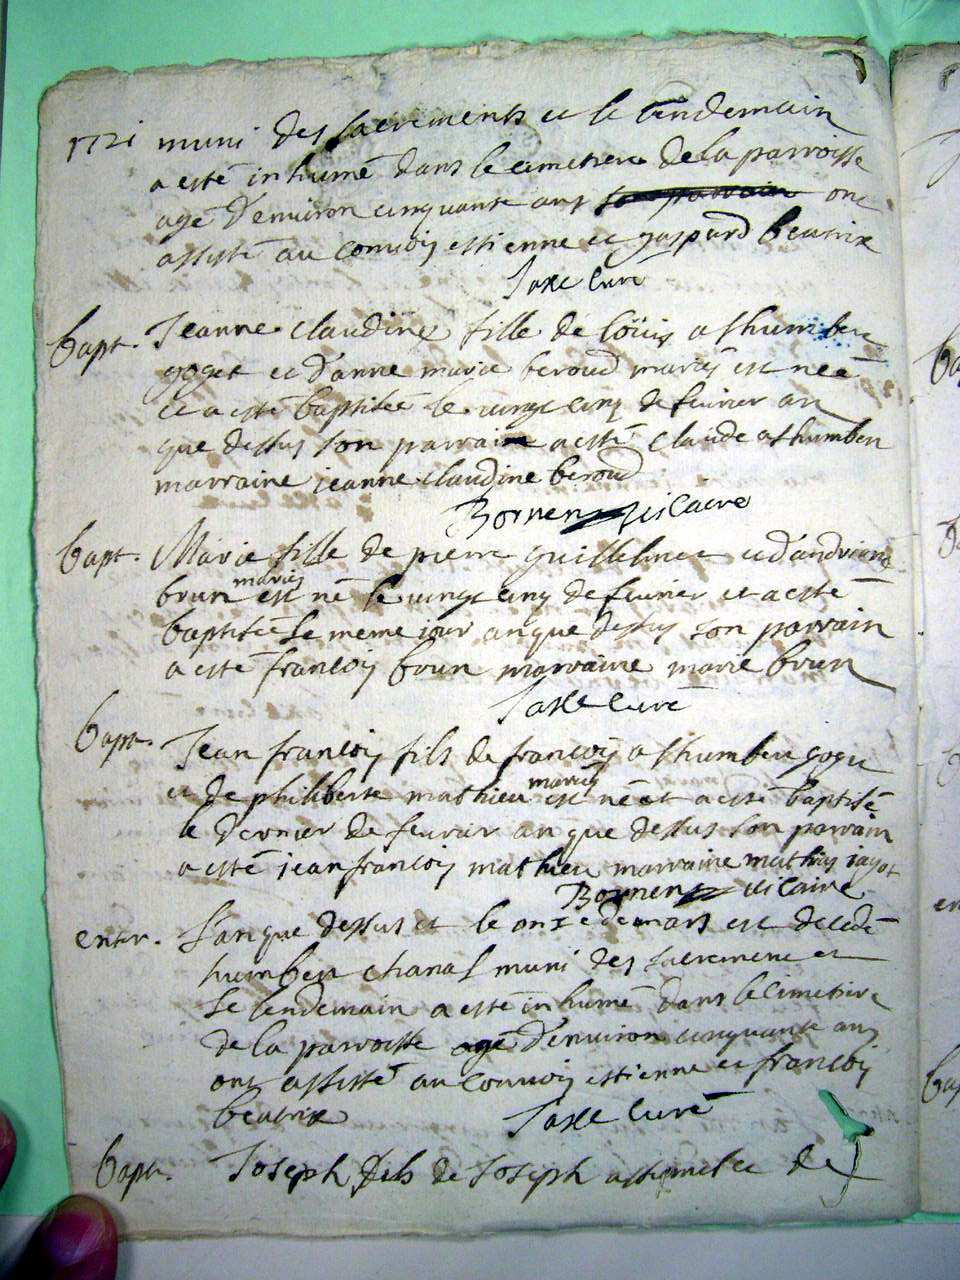 1721 muni des sacrements et le lendemain
a esté inhumé dans le cimetiere de la parroisse
agé d'environ cinquante ans son parrain ont
assisté au convoy estienne et gaspard beatrix
Saxe curé
bapt. Jeanne claudine fille de loüis ashumbert
goget et d'anne marie beroud mariés est née
et a esté baptisée le vingt cinq de fevrier an
que dessus son parrain a esté claude ashumbert
marraine jeanne claudine beroud
Bornen vicaire
bapt. Marie fille de pierre guillelmet et d'andriane
brun mariés est né le vingt cinq de fevrier et a esté
baptisée le meme jour an que dessus son parrain
a esté francois brun marraine marie brun
Saxe curé
bapt. Jean francois fils de francois ashumbert goget
et de philiberte mathieu mariés est né et a esté baptisé
le dernier de fevrier an que dessus son parrain
a esté jean francois mathieu marraine mathis jayot
Bornen vicaire
enter. L'an que dessus et le onze de mars est decedé
humbert chanal muni des sacrement et
le lendemain a esté inhumé dans le cimetiere
de la parroisse agé d'environ cinquante ans
ont assisté au convoy estienne et francois
beatrix Saxe curé
bapt. Joseph fils de Joseph de